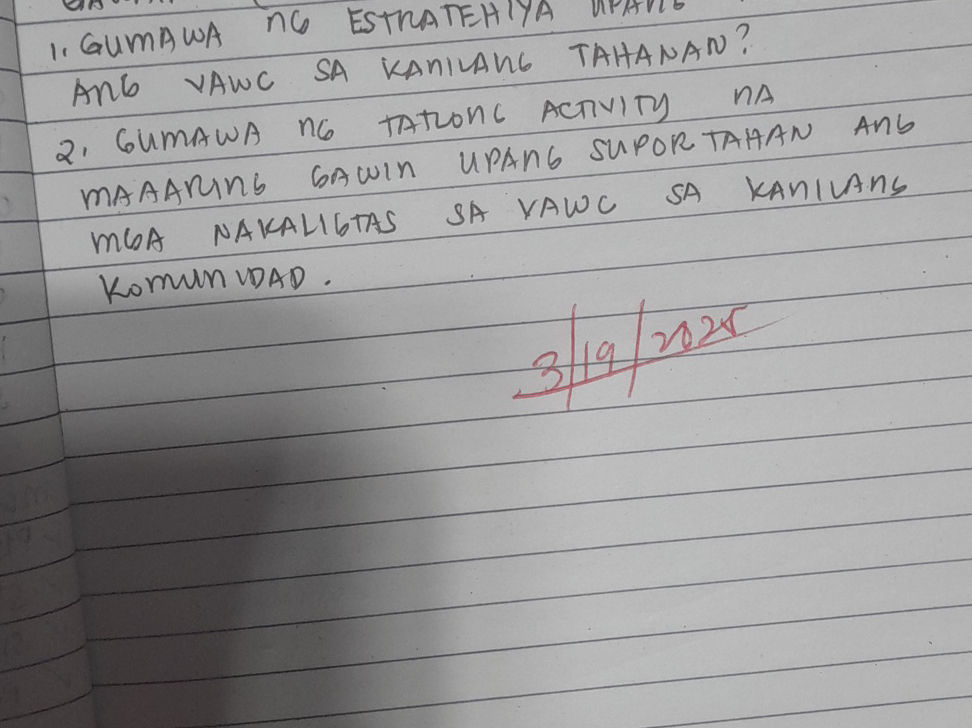 1. GUMAWA NG ESTRATEHIYA UPANG
ANG VAWC SA KANILANG TAHANAN?
2. GUMAWA NG TATLONG ACTIVITY NA
MAAARING GAWIN UPANG SUPORTAHAN ANG
MGA NAKALIGTAS SA VAWC SA KANILANG
KOMUNIDAD.
3/19/2025